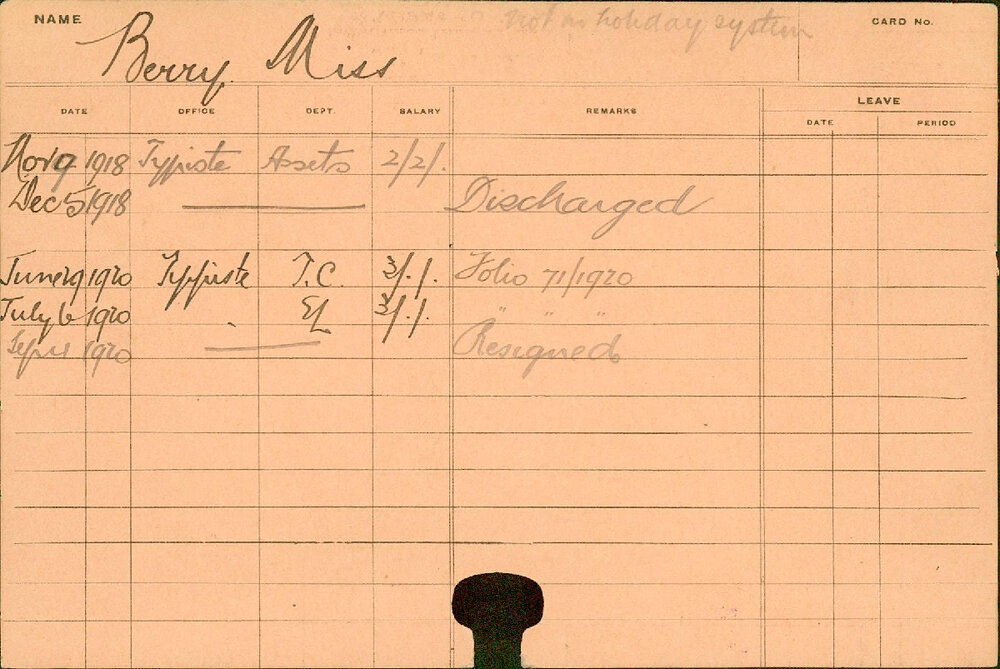 NAME Berry Miss not on holiday system CARD No.
DATE OFFICE DEPT. SALARY REMARKS LEAVE
DATE PERIOD
Nov 9 1918 Typiste Assets 2/2/.
Dec 5 1918 Discharged
June 29 1920 Typiste T.C. 3/./. Folio 71/1920
July 6 1920 " EL 3/./. " " "
Sept 1920 Resigned